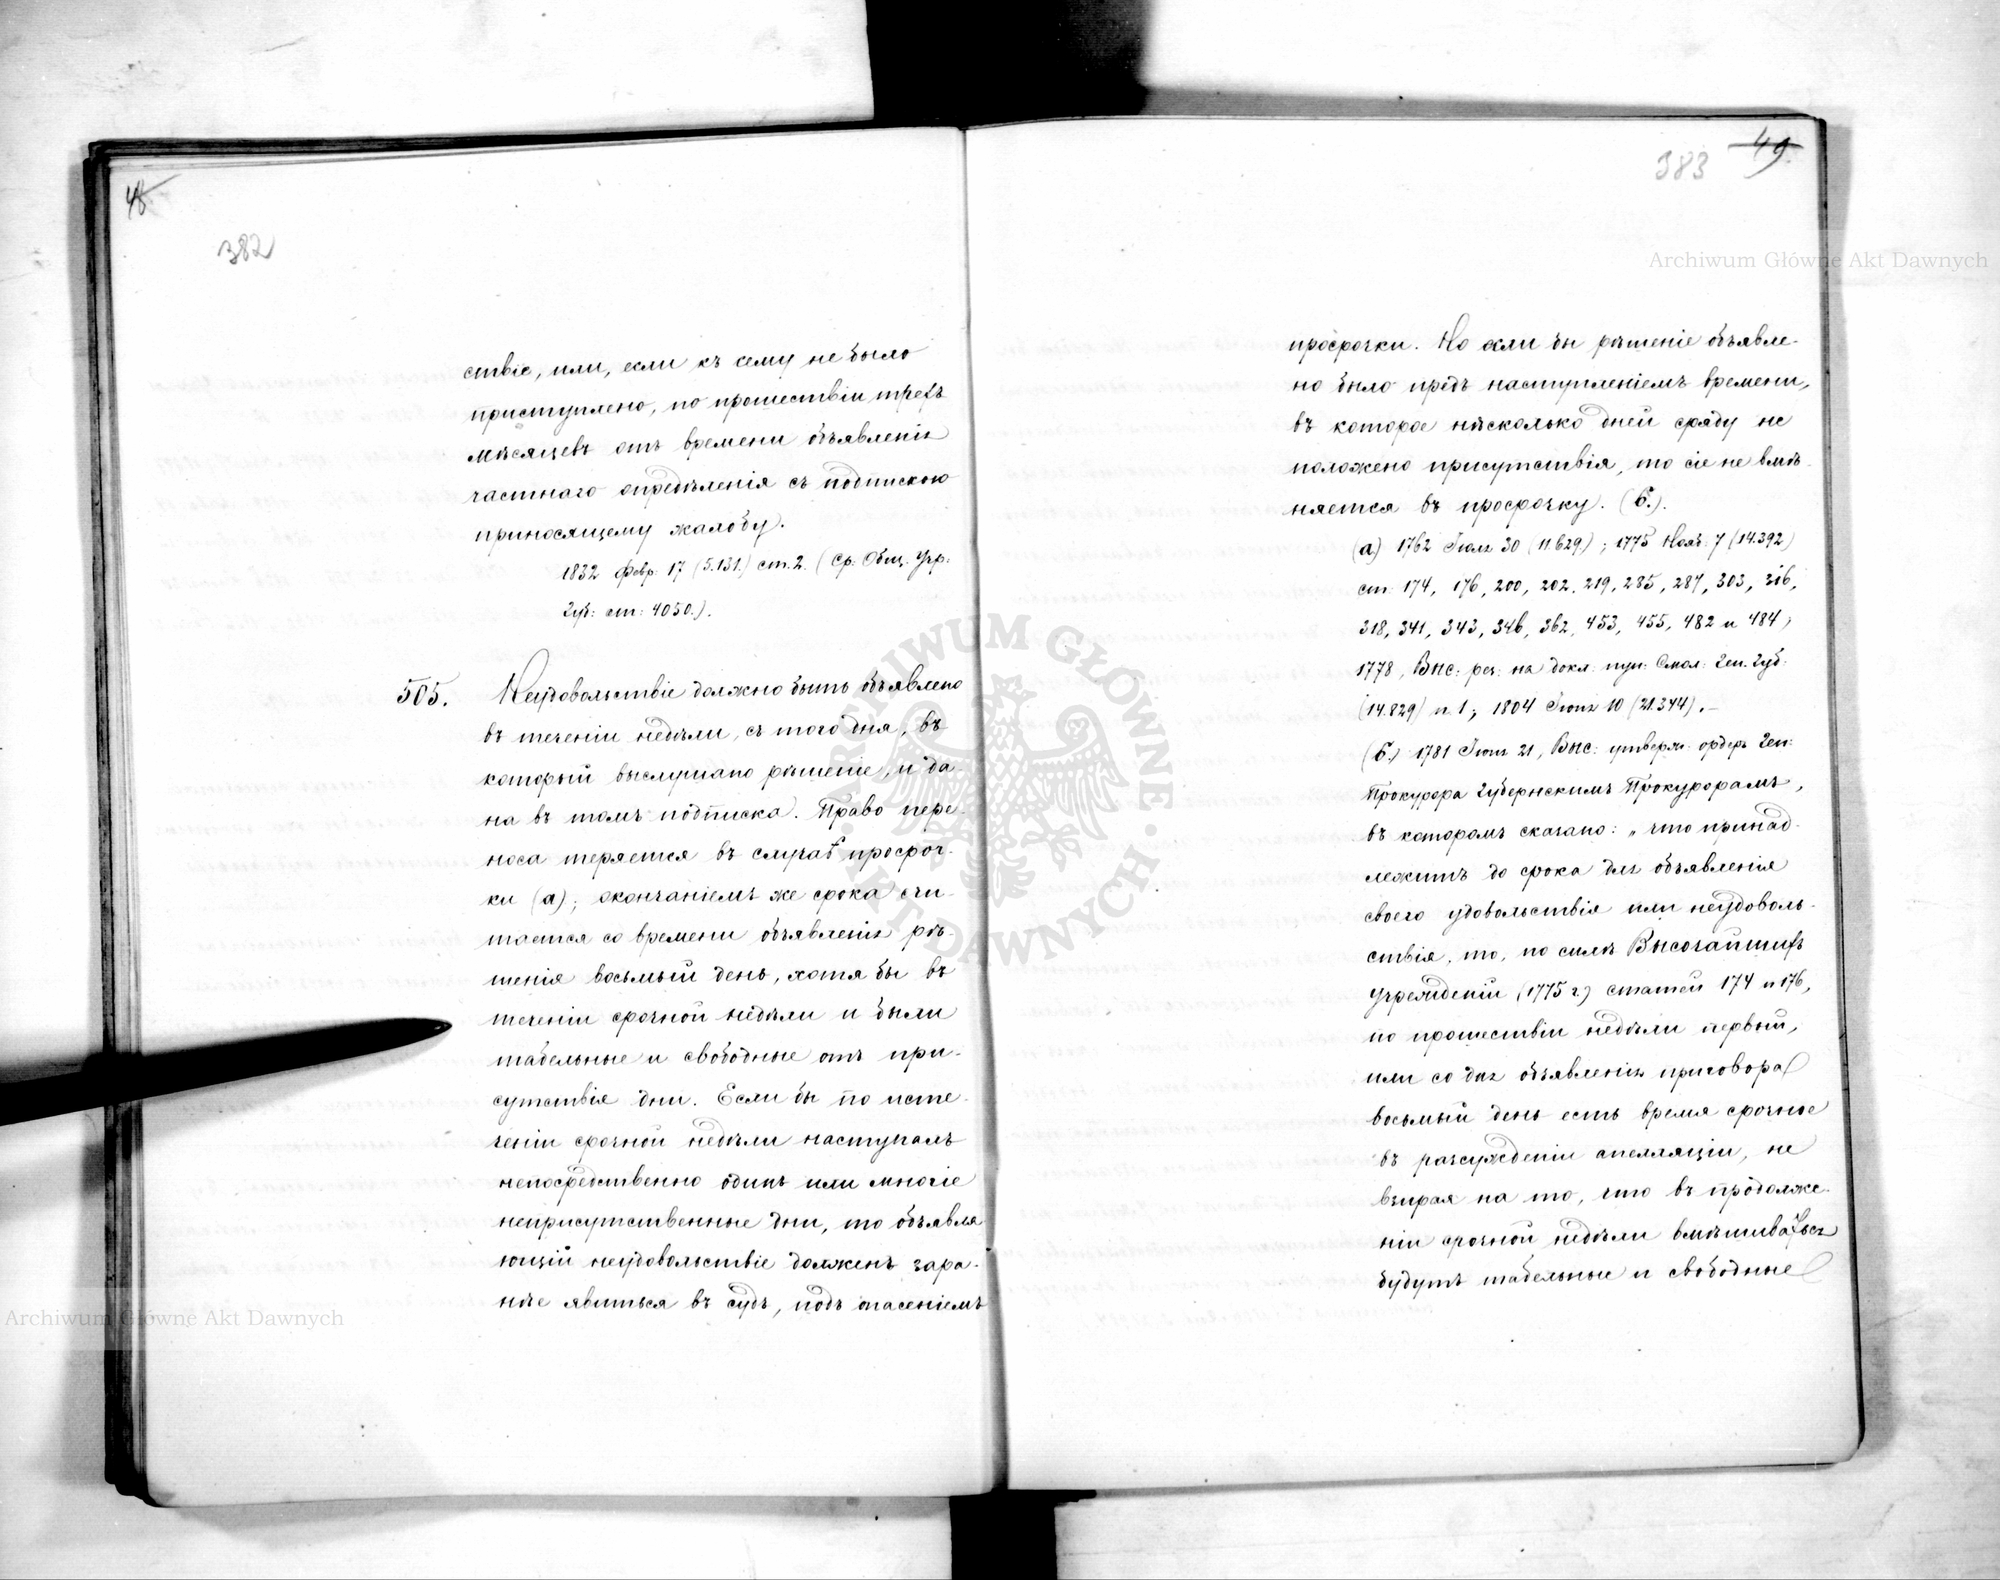 48
382
ствіе, или, если къ сему не было
приступлено, по прошествіи трехъ
мѣсяцевъ отъ времени объявленія
частнаго опредѣленія съ подпискою
приносящему жалобу.
1832 Февр. 17 (5.131.) ст. 2. (Ср. Общ. Учр.
Губ: ст: 4050.).
505. Неудовольствіе должно быть объявлено
въ теченіи недѣли, съ того дня, въ
который выслушано рѣшеніе, и да-
на въ томъ подписка. Право пере-
носа теряется въ случаѣ просроч-
ки (а); окончаніемъ же срока счи-
тается со времени объявленія рѣ-
шенія восьмый день, хотя бы въ
теченіи срочной недѣли и были
табельные и свободные отъ при-
сутствія дни. Если бы по исте-
ченіи срочной недѣли наступалъ
непосредственно одинъ или многіе
неприсутственные дни, то объявля
ющій неудовольствіе долженъ зара-
нѣе явиться въ судъ, подъ опасеніемъ
383 49
просрочки. Но если бы рѣшеніе объявле-
но было предъ наступленіемъ времени,
въ которое нѣсколько дней сряду не
положено присутствія, то сіе не вмѣ-
няется въ просрочку. (б.).
(а) 1762 Іюля 30 (11.629.); 1775 Нояб. 7 (14.392)
ст: 174, 176, 200, 202, 219, 285, 287, 303, 316,
318, 341, 343, 346, 362, 453, 455, 482 и 484;
1778, Выс: рез: на докл. пун: Смол: Ген. Губ:
(14.829) п. 1; 1804 Іюня 10 (21.344).—
(б.) 1781 Іюня 21, Выс: утверж: ордеръ Ген:
Прокурора Губернскимъ Прокурорамъ,
въ которомъ сказано: „что принад-
лежитъ до срока для объявленія
своего удовольствія или неудоволь-
ствія, то, по силѣ Высочайшихъ
учрежденій (1775 г.) статей 174 и 176,
по прошествіи недѣли первый,
или со дня объявленія приговора
восьмый день есть время срочное
въ разсужденіи апелляціи, не
взирая на то, что въ продолже-
ніи срочной недѣли вмѣшиваться
будутъ табельные и свободные
Archiwum Główne Akt Dawnych
Archiwum Główne Akt Dawnych
ARCHIWUM GŁÓWNE · AKT DAWNYCH ·